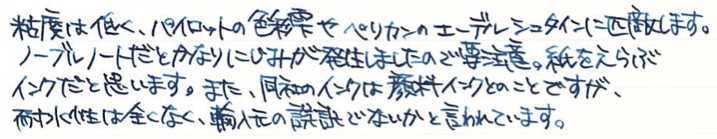 粘度は低く、パイロットの色彩雫やペリカンのエーデルシュタインに匹敵します。
ノーブルノートだとかなりにじみが発生しましたので要注意。紙をえらぶ
インクだと思います。また、同社のインクは顔料インクとのことですが、
耐水性は全くなく、輸入元の誤訳でないかと言われています。